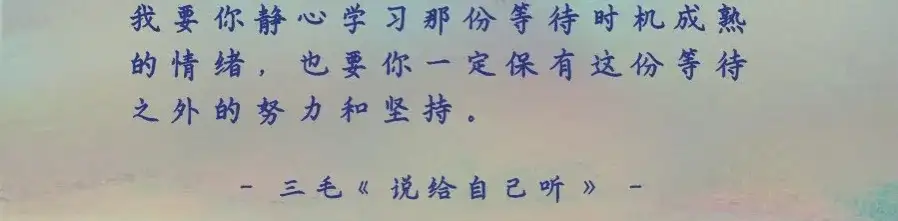 我要你静心学习那份等待时机成熟
的情绪，也要你一定保有这份等待
之外的努力和坚持。
- 三毛《说给自己听》 -